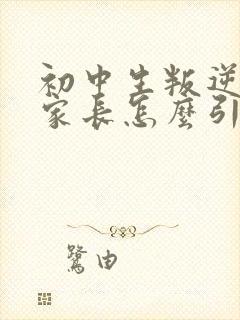 初中生叛逆
家长怎麼引
鹭由